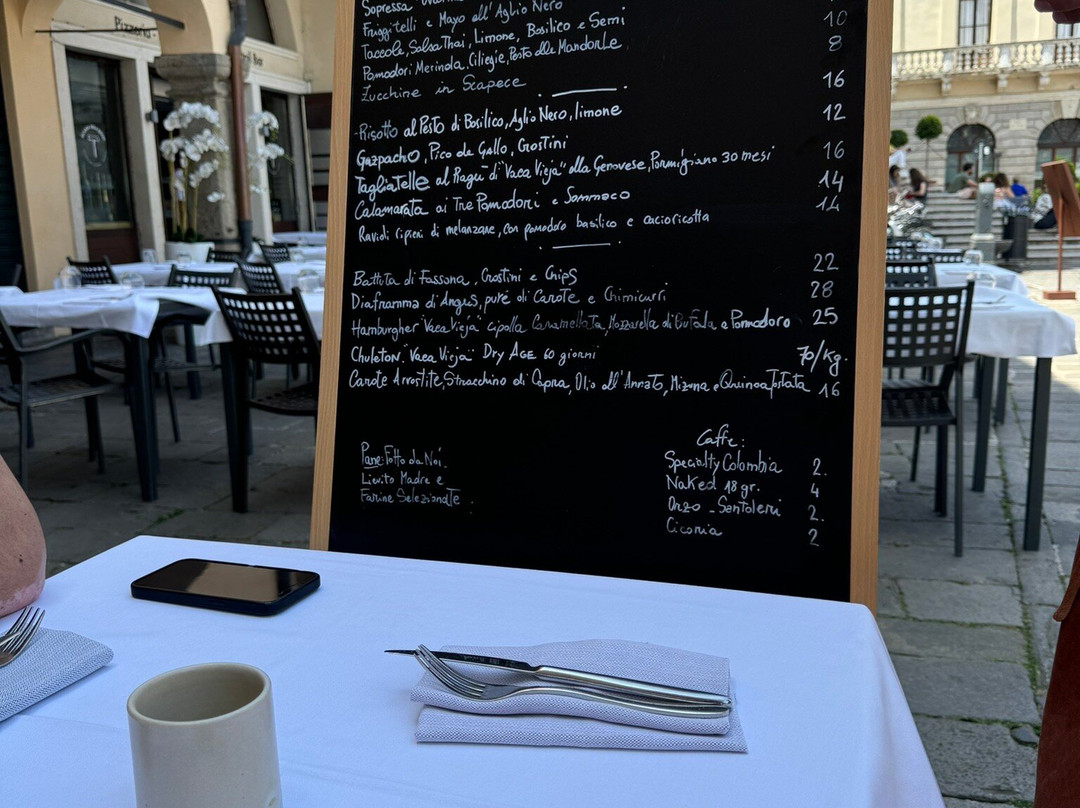 Pizzeria
Bar
Sopressa
Friggitelli e Mayo all'Aglio Nero
Taccole, Salsa Thai, Limone, Basilico e Semi 10
Pomodori Merinda, Ciliegie, Pesto alle Mandorle 8
Zucchine in Scapece
Risotto al Pesto di Basilico, Aglio Nero, limone 16
Gazpacho, Pico de Gallo, Crostini 12
Tagliatelle al Ragu di "Vaca Vieja" alla Genovese, Parmigiano 30 mesi 16
Calamarata ai Tre Pomodori e Sommaco 14
Ravioli ripieni di melanzane, con pomodoro basilico e cacioricotta 14
Battuta di Fassona, Crostini e Chips 22
Diaframma di Angus, purè di Carote e Chimicurri 28
Hamburgher "Vaca Vieja" cipolla Caramellata, Mozzarella di Bufala e Pomodoro 25
Chuleton "Vaca Vieja" Dry Age 60 giorni 70/Kg.
Carote Arrostite, Stracchino di Capra, Olio all'Annato, Mizuna e Quinoa Tostata 16
Pane: Fatto da Noi
Lievito Madre e
Farine Selezionate
Caffe:
Specialty Colombia 2.
Naked 18 gr. 4
Orzo - Santoleri 2.
Cicoria 2